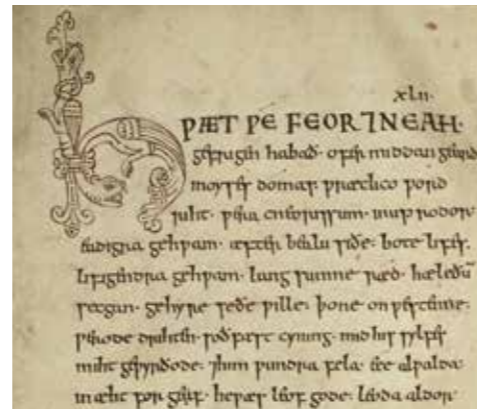 xlii·
HǷÆT ǷE FEOR ⁊ NEAH·
gefrigen habað· ofer middan geard
moyses domas· ƿræclico ƿord
riht· ƿera cneorissum· in up rodor
eadigra gehƿam· æfter bealu siðe· bote lifes·
lifigendra gehƿam· lang sumne ræd· hæleðū
secgan· gehyre seðe ƿille· þone on ƿestenne·
ƿerode drihten· soð fæst cyning· mid his sylfes
miht geƿyrðode· ⁊him ƿundra fela· éce alƿalda·
in æht for geaf· heƿæs leof gode· leoda aldor